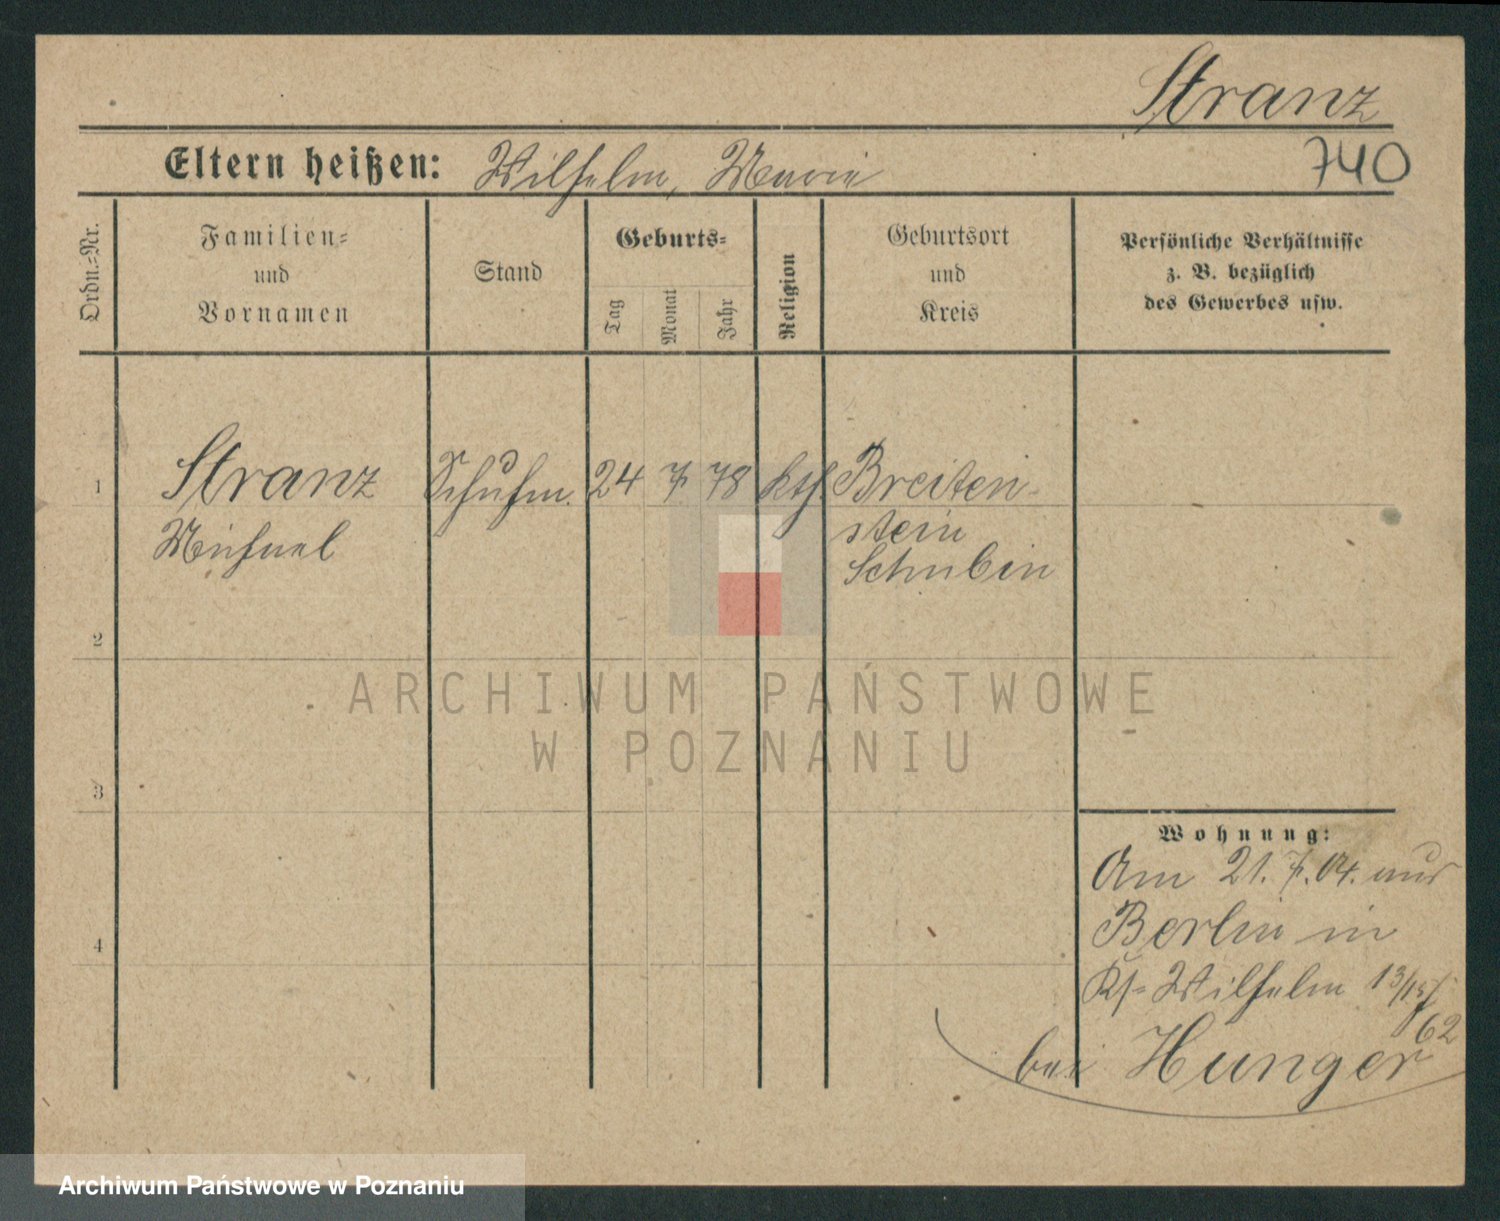 Stranz
740
Eltern heißen: Wilhelm, Marie
Ordn.=Nr.
Familien=
und
Vornamen
Stand
Geburts=
Tag
Monat
Jahr
Religion
Geburtsort
und
Kreis
Persönliche Verhältnisse
z. B. bezüglich
des Gewerbes usw.
1
Stranz
Michael
Schuhm.
24
7
78
kth.
Breiten-
stein
Schubin
2
3
4
ARCHIWUM PAŃSTWOWE
W POZNANIU
Wohnung:
Am 21. 7. 04. aus
Berlin in
Wilhelm 13/15
62
bei Hunger
Archiwum Państwowe w Poznaniu